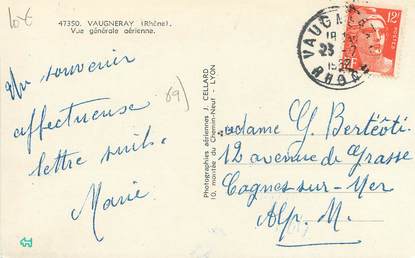 47350. VAUGNERAY (Rhône).
Vue générale aérienne.
Un souvenir
affectueux
lettre suit.
Marie
69)
Photographies aériennes J. CELLARD
10, montée du Chemin-Neuf - LYON
RHONE
12F
Madame G. Bertéoti
12 avenue de Grasse
Cagnes-sur-Mer
Alp. M.